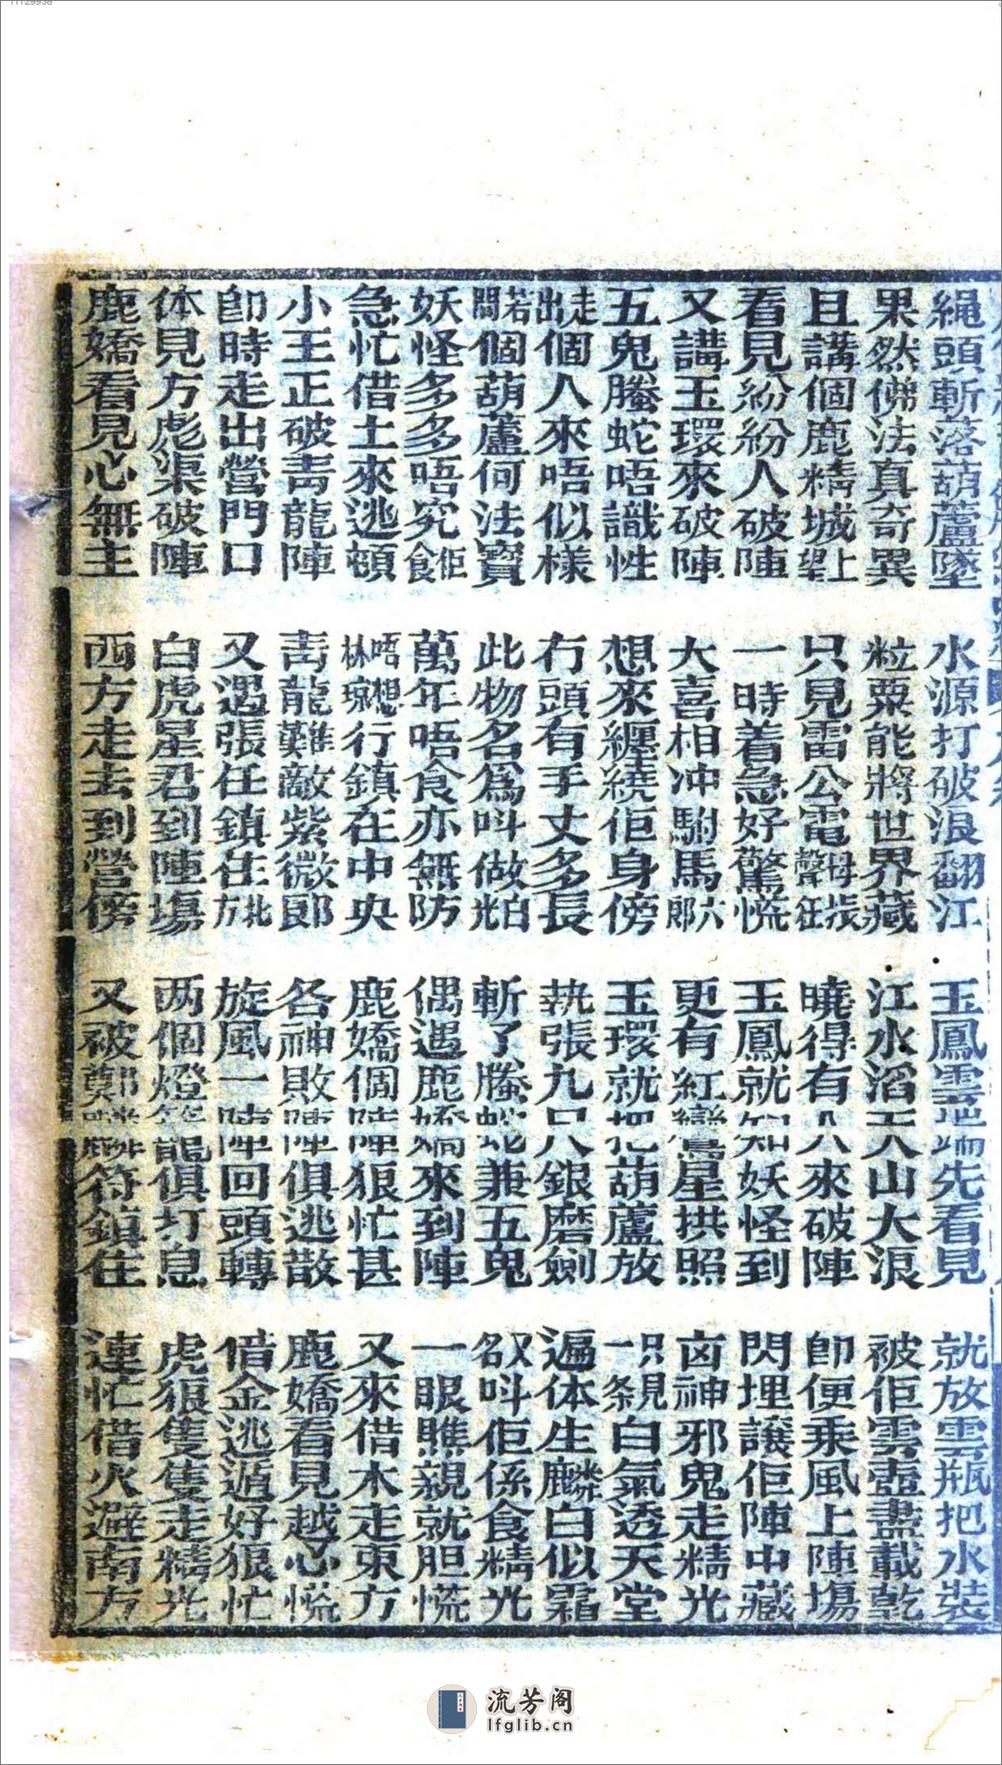 繩頭斬落葫蘆墜 水源打破浪翻江 玉鳳雲端先看見 就放雲瓶把水裝
果然佛法真奇異 粒粟能將世界藏 江水滔天山大浪 被佢雲壺盡載乾
且講個鹿精城上望 只見雷公電母找聲狂 曉得有人來破陣 即便乘風上陣塲
看見紛紛人破陣 一時着急好驚慌 玉鳳就知妖怪到 閃埋讓佢陣中藏
又講玉環來破陣 大喜相冲駙馬六郎 更有紅鸞星拱照 卤神邪鬼走精光
五鬼螣蛇唔識性 想來纒繞佢身傍 玉環就把葫蘆放 只見一条白氣透天堂
走出個人來唔似樣 冇頭有手丈多長 執張九尺銀磨劍 遍体生麟白似霜
若問個葫蘆何法寶 此物名為呌做白光 斬了螣蛇兼五鬼 又名呌佢係食精光
妖怪多多唔究佢食 萬年唔食亦無防 偶遇鹿嬌來到陣 一眼瞧親就胆慌
急忙借土來逃頓 唔想林琼行鎮在中央 鹿嬌個陣狠忙甚 又來借木走東方
小王正破青龍陣 青龍難敵紫微郎 各神敗陣俱逃散 鹿嬌看見越心慌
卽時走出營門口 又遇張任鎮在北方 旋風一陣回頭轉 借金逃遁好狠忙
体見方彪渠破陣 白虎星君到陣塲 两個燈籠俱打息 虎狠隻隻走精光
鹿嬌看見心無主 西方走去到營傍 又被鄭符鎮住 連忙借火避南方
流芳阁
lfglib.cn